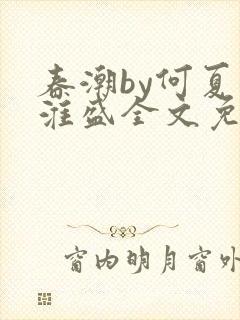 春潮by何夏
淮盛全文免
窗内明月窗外